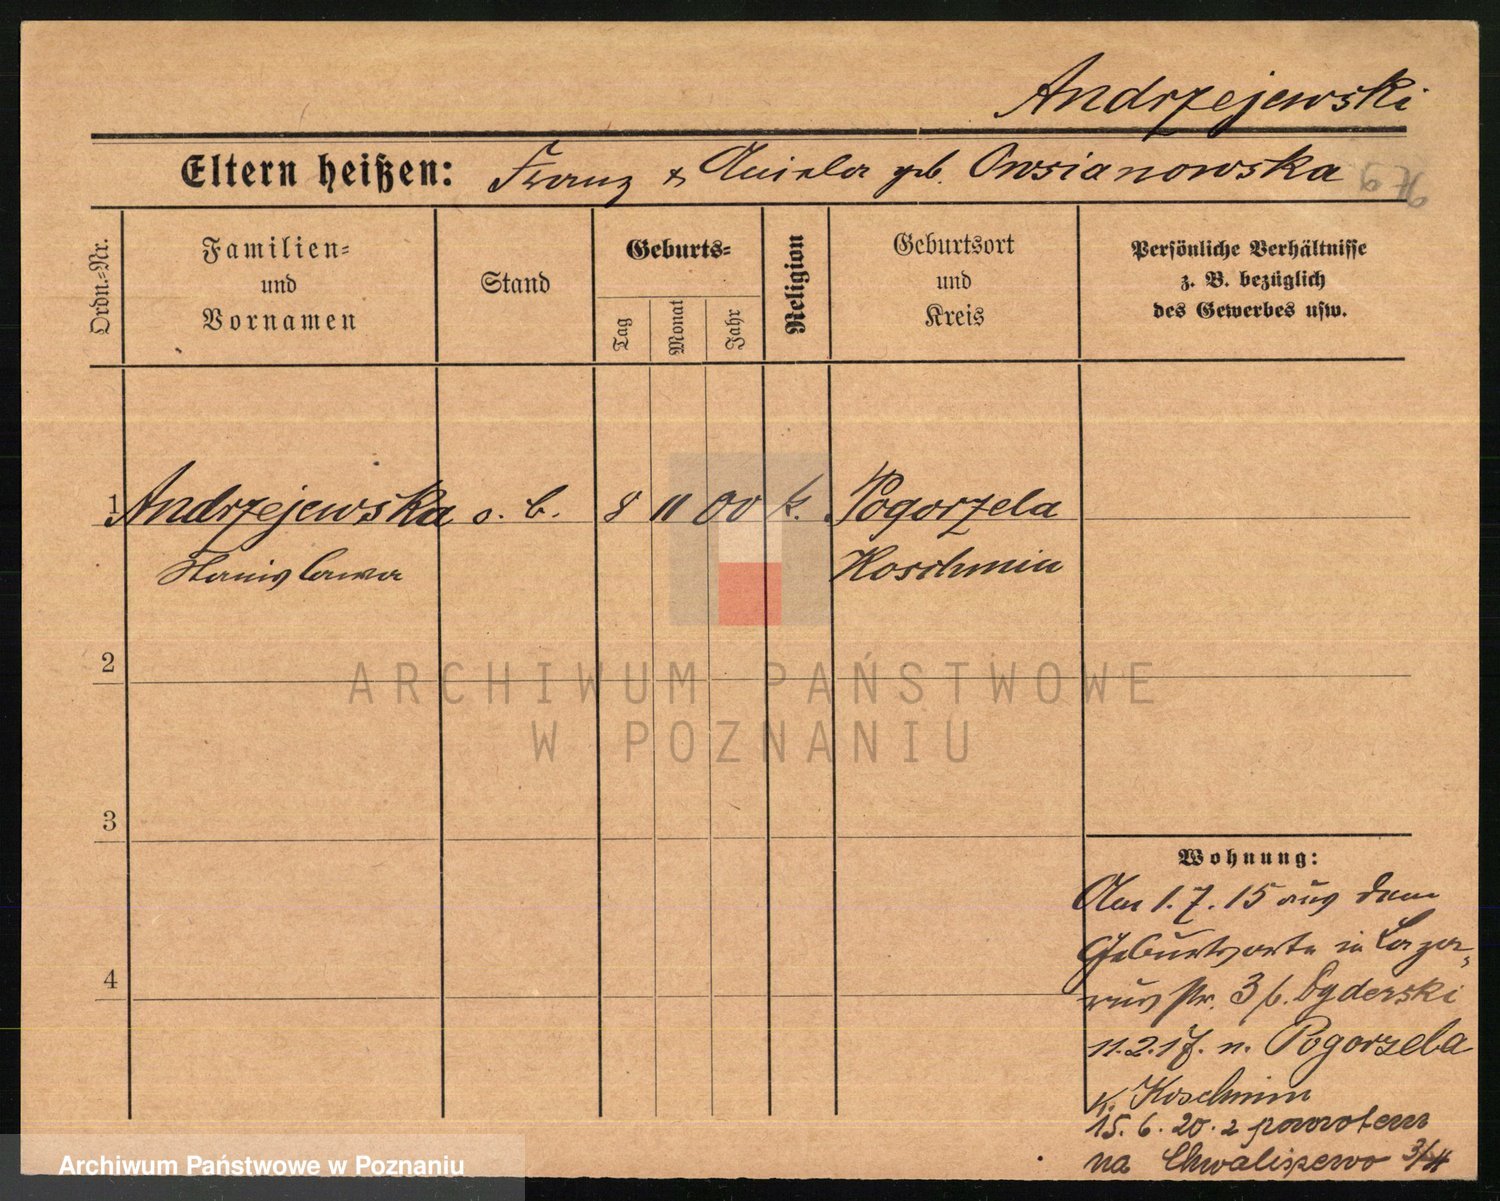 Andrzejewski
Eltern heißen: Franz & Aniela geb. Owsianowska
Ordn.-Nr.
Familien-
und
Vornamen
Stand
Geburts-
Tag
Monat
Jahr
Religion
Geburtsort
und
Kreis
Persönliche Verhältnisse
z. B. bezüglich
des Gewerbes usw.
1 Andrzejewska o. b. 8 11 00 k. Pogorzela
Stanislawa Koschmin
2
ARCHIWUM PAŃSTWOWE
W POZNANIU
3
Wohnung:
Am 1.7.15 aus dem
Geburtsorte in Laza-
4
rus str. 3 b. Dyderski
11.2.17. n. Pogorzela
K. Koschmin
15.6.20. z powrotem
na Chwaliszewo
Archiwum Państwowe w Poznaniu